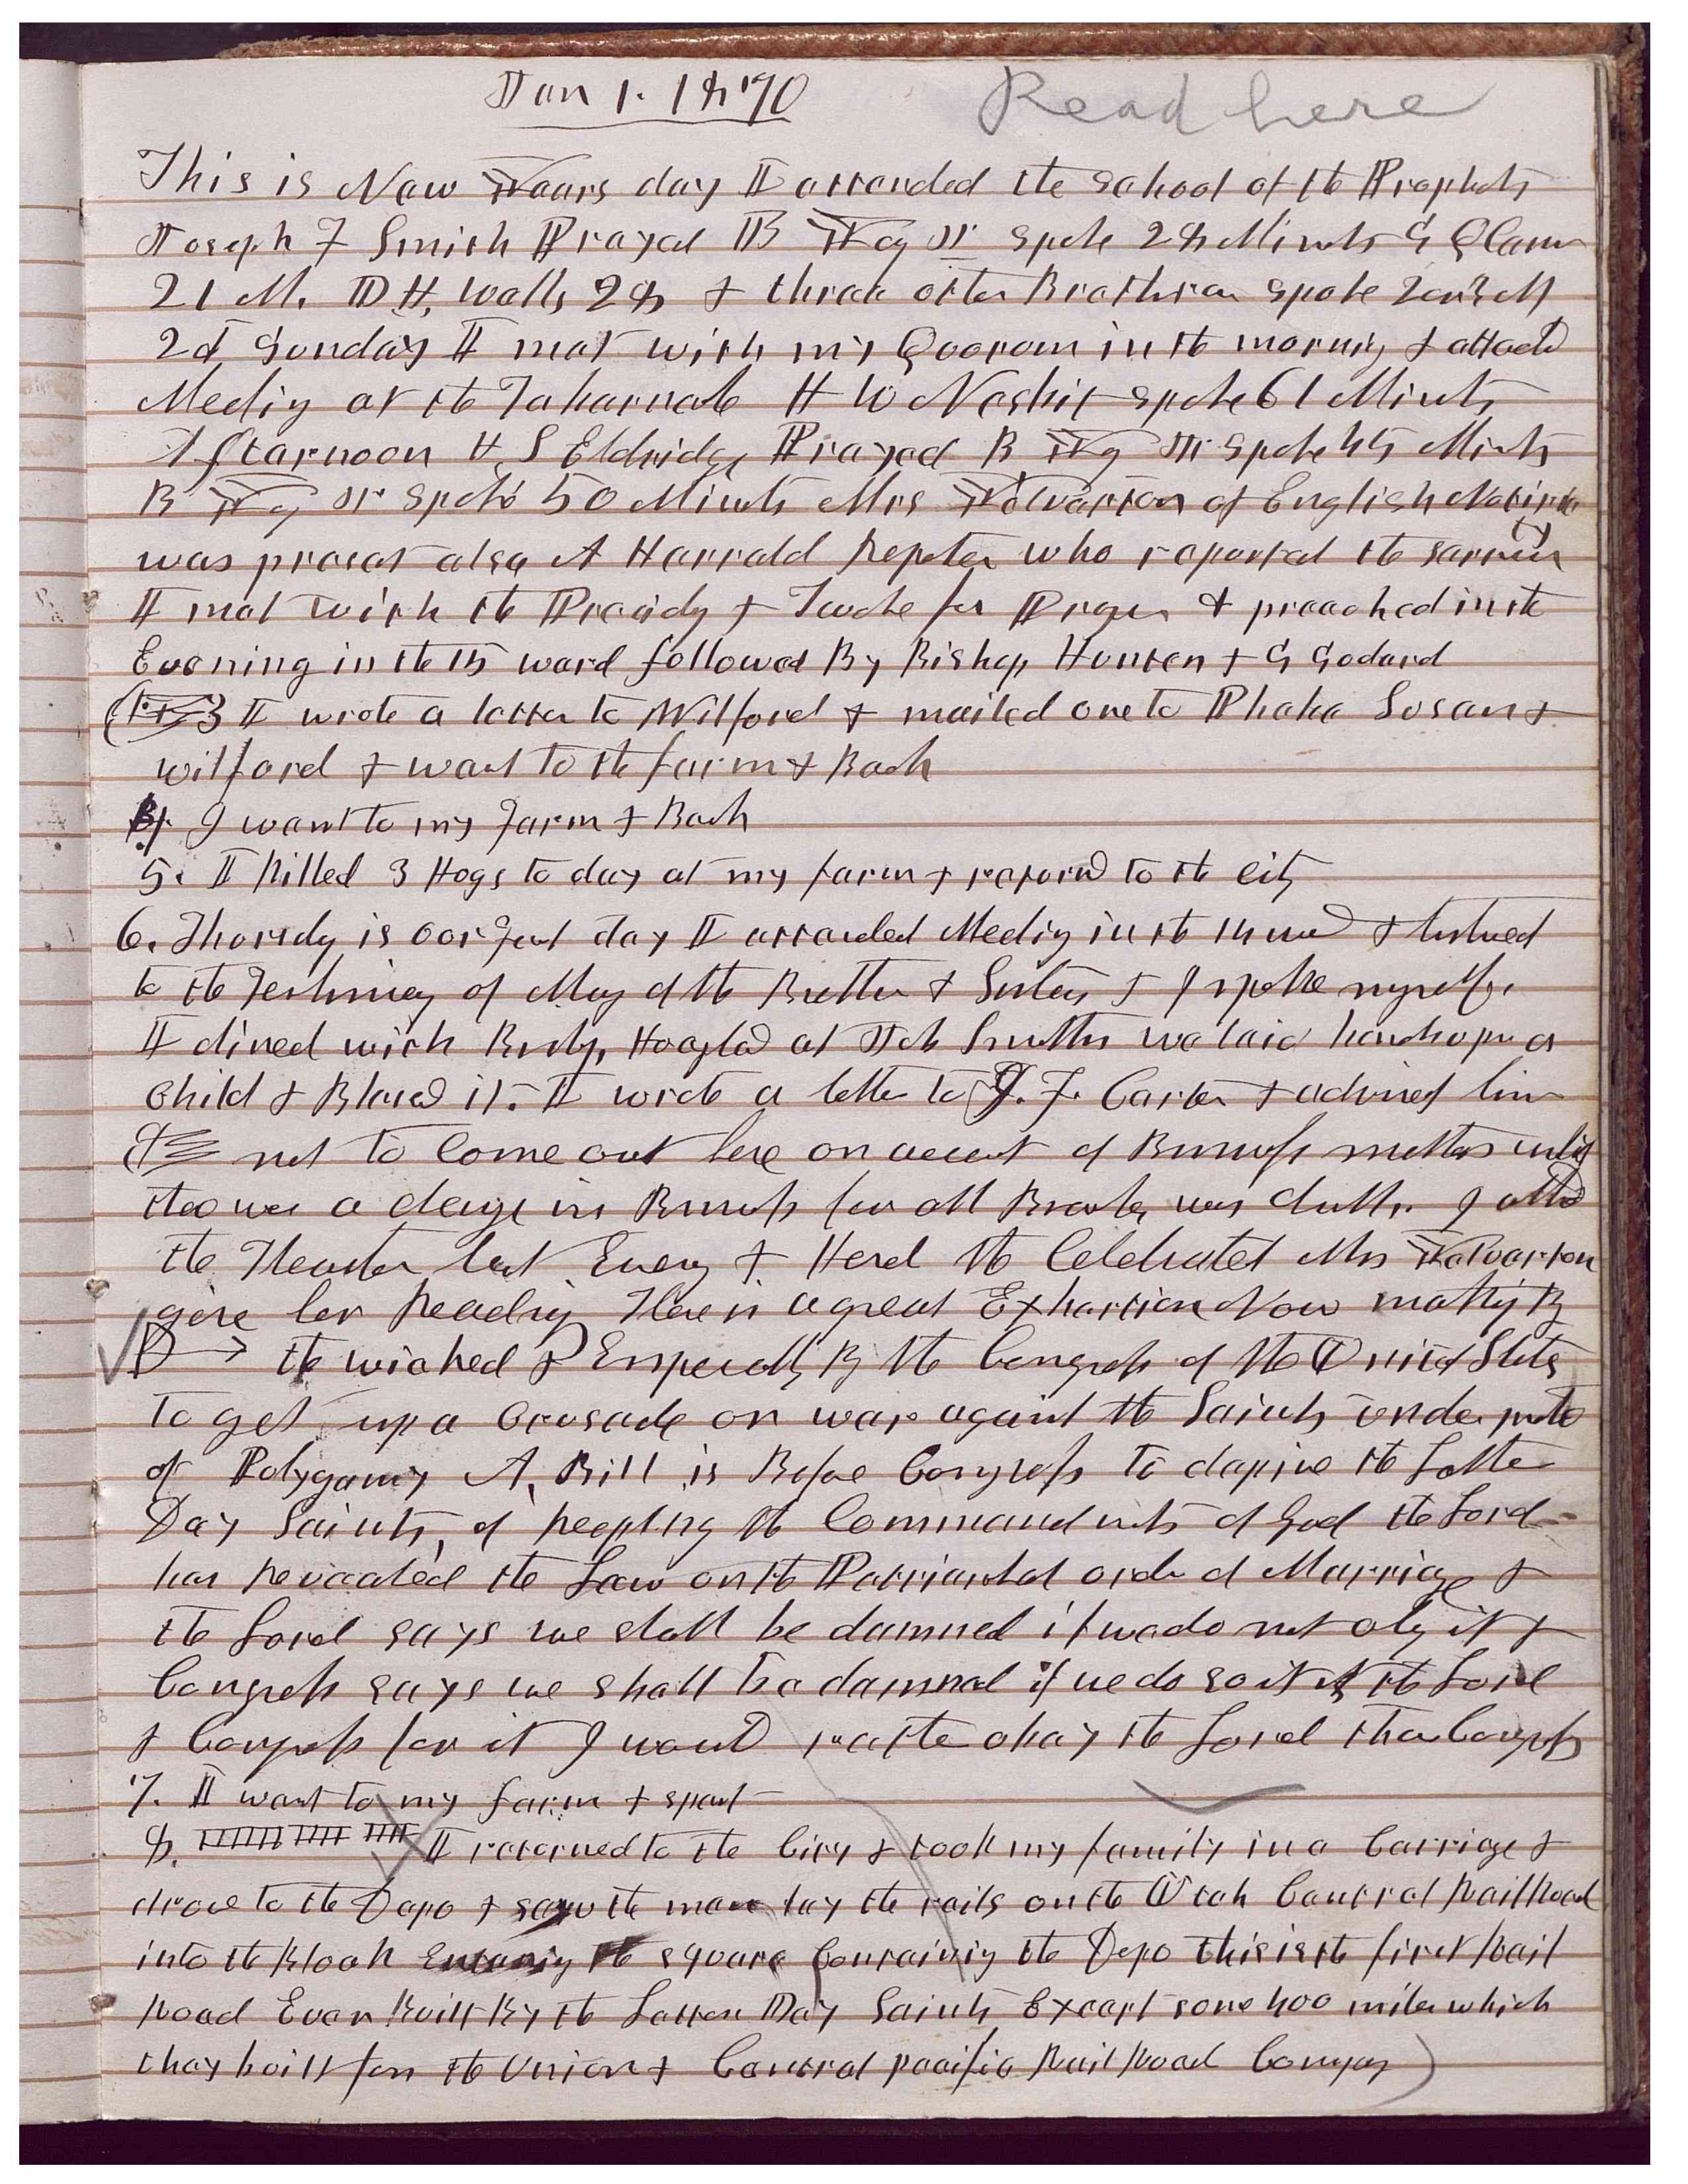 Jan 1. 1870
Read here
This is New Years day I attended the school of the Prophets
Joseph F Smith Prayed B Yg Jr spoke 28 Minuts G Q Cann
21 M. D H. Wells 28 & three other Brethren spoke 2 or 3 M
2d Sunday I met with my Quorum in the morning & atted
Meeting at the Tabernale H W Nasbit spoke 61 Minuts
Afternoon H. S Eldridge Prayed B Yg Jr spoke 45 Minuts
B Yg Jr spoke 50 Minuts Mrs Yelverton of English Notirity
was preset also A Harrald Repoter who reported the sarmon
I met with the Presidy & Twelve for Prayer & preached in the
Evening in the 15 ward followed By Bishop Hunter & G Godard
3 I wrote a letter to Wilford & mailed one to Phebe Susan &
wilford & went to the farm & Back
4. I went to my Farm & Back
5. I killed 3 Hogs to day at my farm & returnd to the city
6. Thursdy is our Fast day I attended Meeting in the 14 ward & listned
to the Testimony of Many of the Brother & Sisters & I spoke myself.
I dined with Bishop Hoaglad at Job Smiths we laid hands upon a
child & Blessed it. I wrote a letter to J. F. Carter & advised him
not to Come out here on account of Business matters until
thee was a change in Business for all Branches was dull. I attd
the Theater last Eveng & Herd the Celebrated Mrs Yelverton
give her Reading There is a great Exhertion Now making By
the wicked & Especally By the Congress of the United States
To get up a Crusade or war against the Saints under pretc
of Polygamy A, Bill is Before Congress to deprive the Latter
Day Saints, of keepting the Commandmts of God the Lord
has Revealed the Law on the Patriarchal order of Marriage &
the Lord says we shall be damned if we do not obey it &
Congress says we shall be damned if we do so it is the Lord
& Congress for it I would rather obey the Lord than Congress
7. I went to my farm & spent
8. I returned to the City & took my family in a Carriage &
drove to the Depo & saw the men lay the rails on the Utah Central Rail Road
into the Block Entering the square Containing the Depo this is the first Rail
Road Ever Built By the Latter Day Saints Except some 400 miles which
they built for the Union & Central pacific Rail Road Company